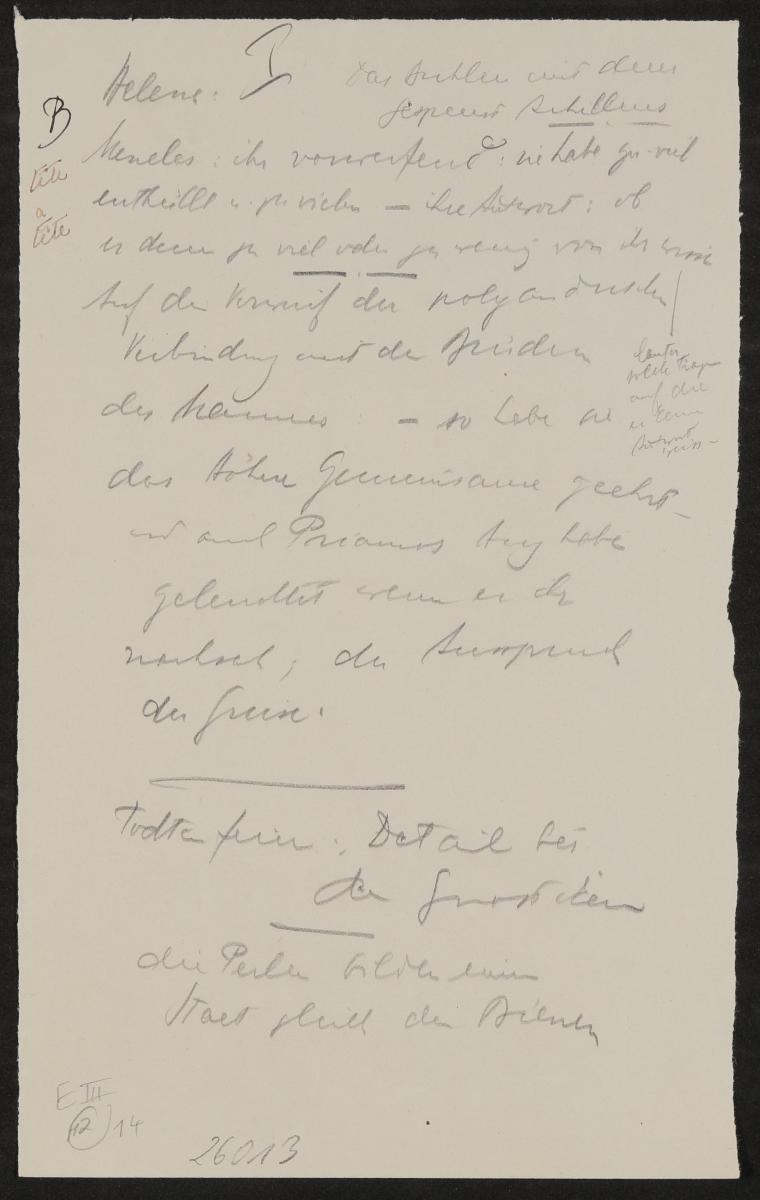 Helene: I Das Buhlen mit dem
Gespenst Achilleus
B
Menelas: ihr vorwerfend: sie habe zu viel
tête
a
tête
enthüllt u. zu vielen — ihre Antwort: ob
er denn zu viel oder zu wenig von ihr wisse
Auf den Vorwurf der polyandrischen
Verbindung mit den Brüdern
lauter
solche Fragen
auf die
er keine
Antwort
weiss —
des Mannes: — so habe sie
das Höhere Gemeinsame geehrt —
und auch Priamos Aug habe
geleuchtet wenn er ihr
nachsah; der Ausspruch
der Greise.
Todtenfeier: Detail bei
den
die Perser bilden einen
Staat gleich den Bienen
E III
12 14
26013